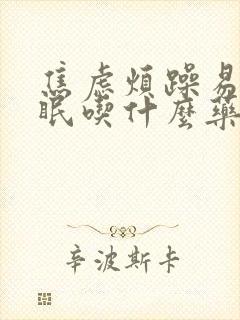 焦虑煩躁易
眠喫什麼藥
辛波斯卡